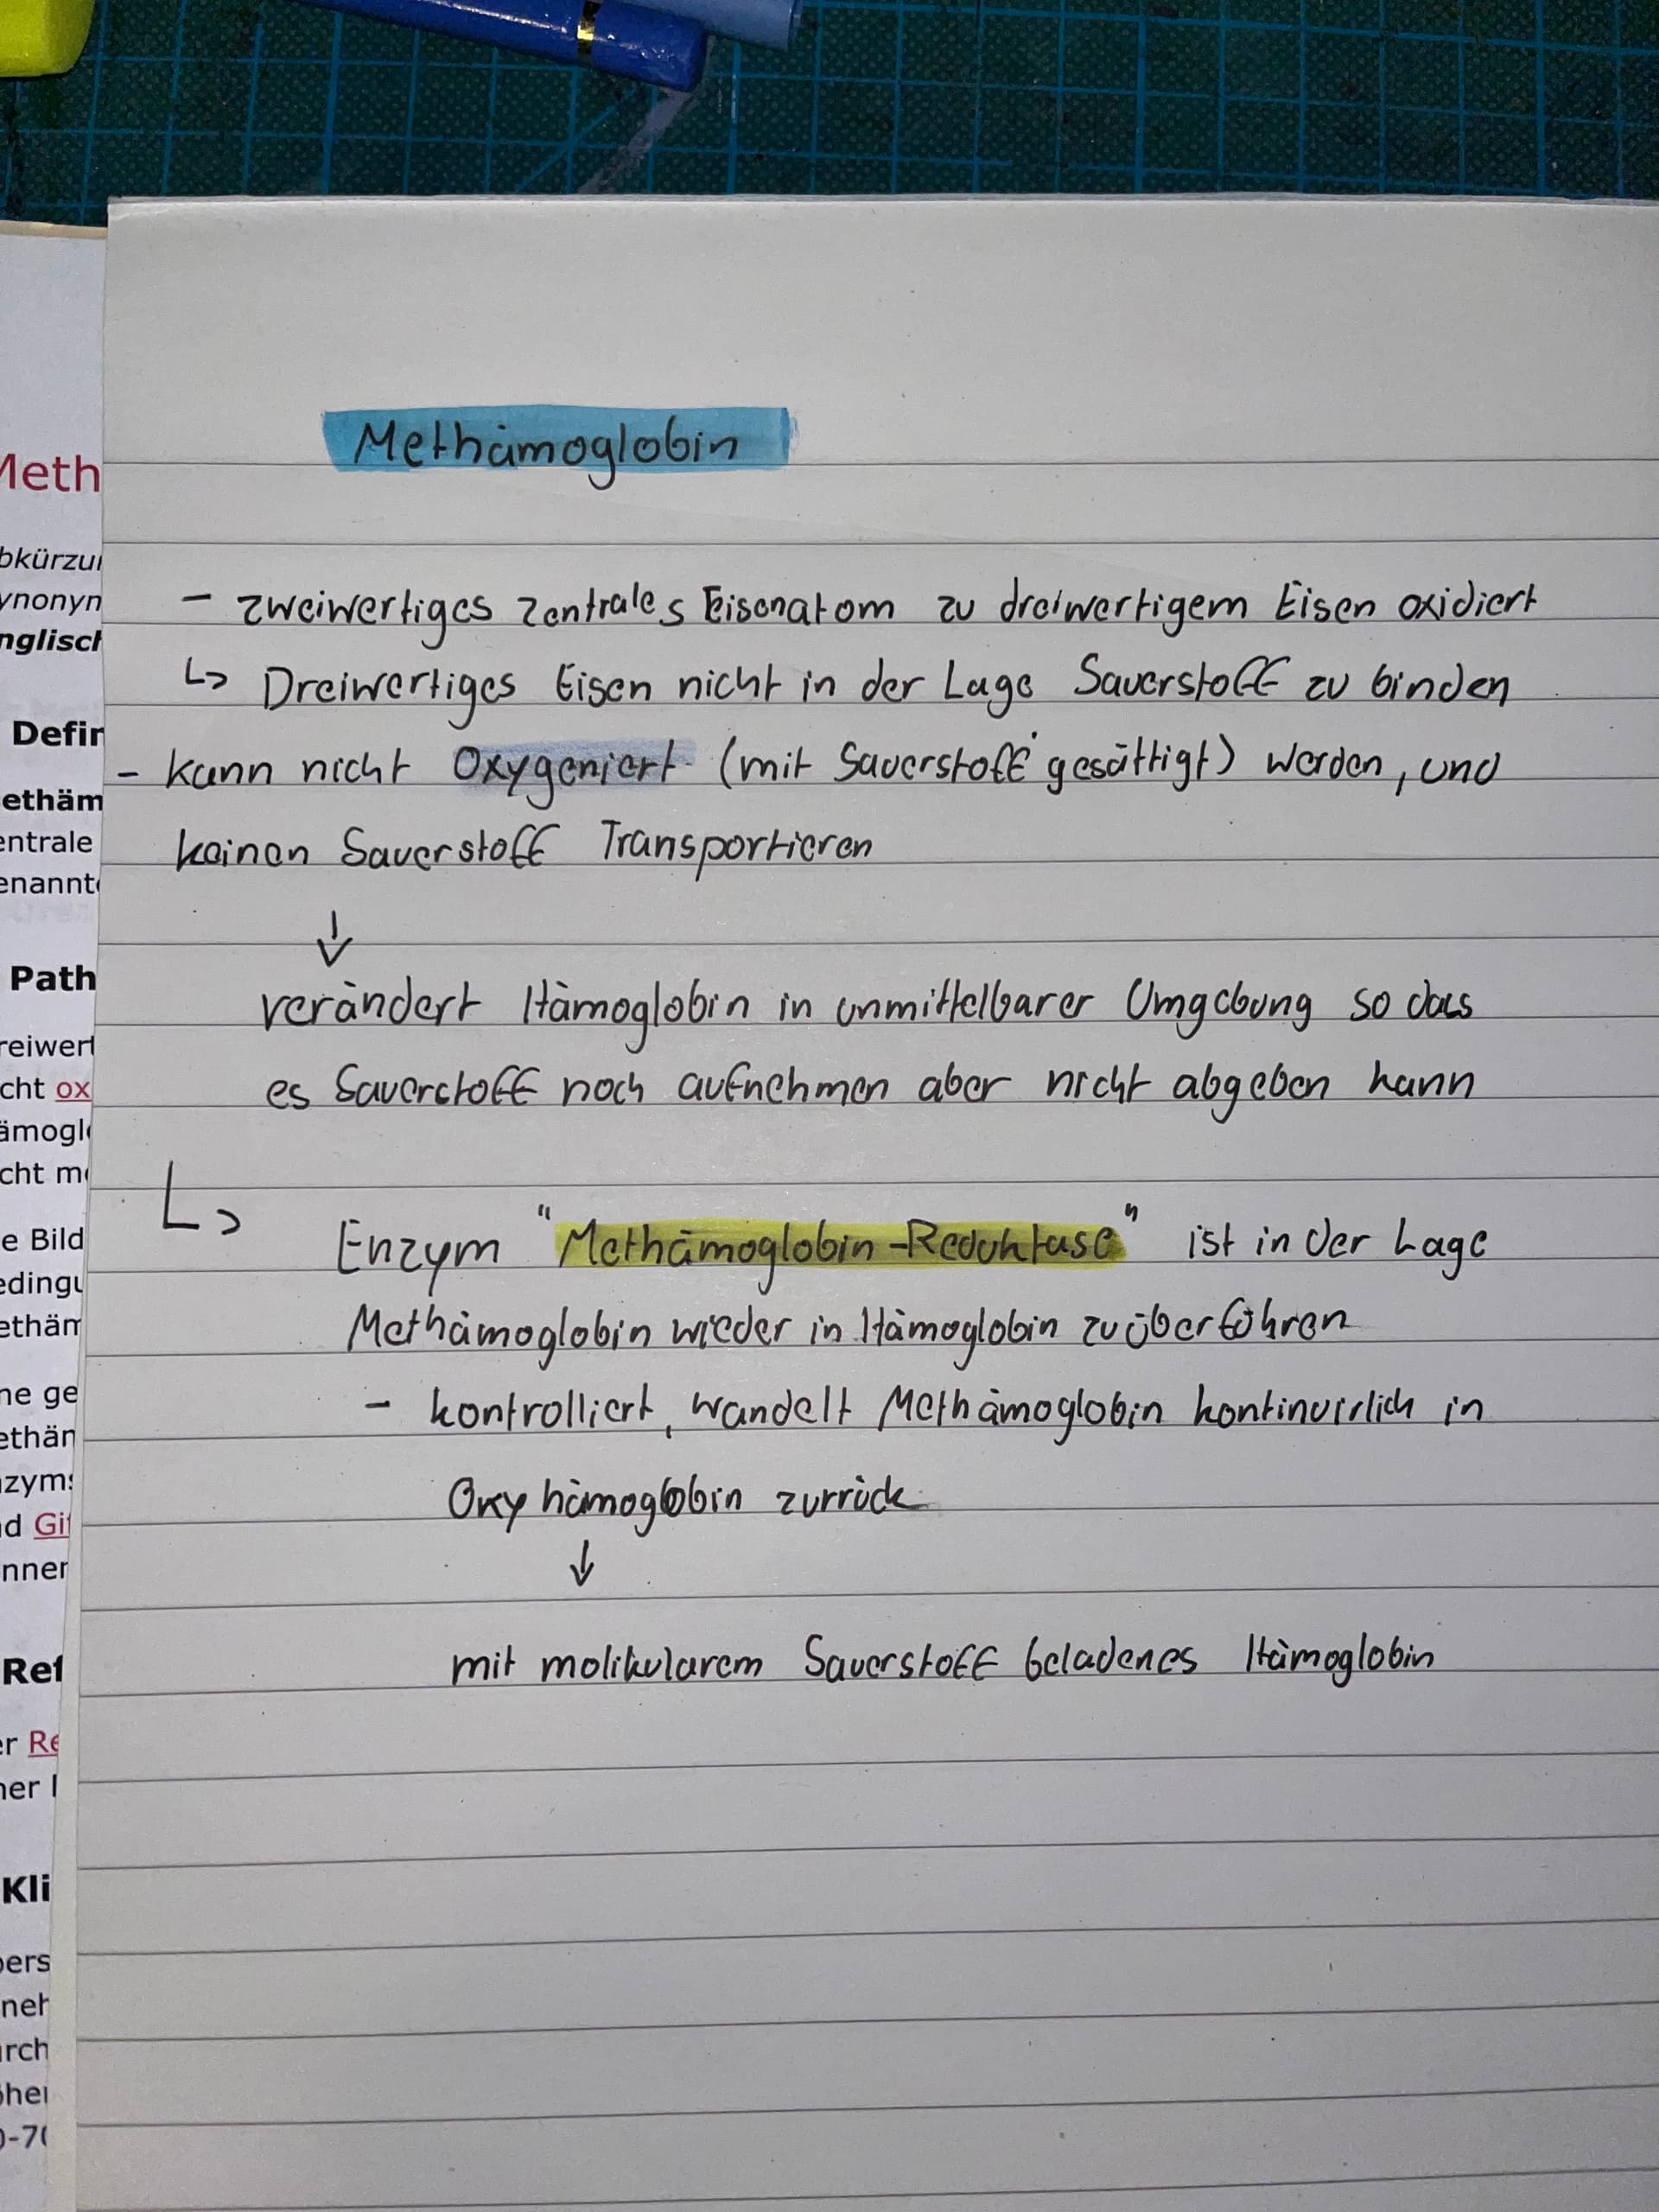 Methämoglobin
- zweiwertiges zentrales Eisenatom zu dreiwertigem Eisen oxidiert
↳ Dreiwertiges Eisen nicht in der Lage Sauerstoff zu binden
- kann nicht Oxygeniert (mit Sauerstoff gesättigt) werden, und
keinen Sauerstoff Transportieren
↓
verändert Hämoglobin in unmittelbarer Umgebung so dass
es Sauerstoff noch aufnehmen aber nicht abgeben kann
↳ Enzym "Methämoglobin-Reduktase" ist in der Lage
Methämoglobin wieder in Hämoglobin zu überführen
- kontrolliert, wandelt Methämoglobin kontinuirlich in
Oxyhämoglobin zurrück
↓
mit molikularem Sauerstoff beladenes Hämoglobin
Meth
bkürzu
ynonyn
nglisch
Defin
ethäm
entrale
enannt
Path
reiwert
cht ox
ämogl
cht m
e Bild
edingu
ethäm
ne ge
ethän
zym
d Gif
nner
Ref
er Re
ner
Kli
pers
neh
urch
öher
0-70